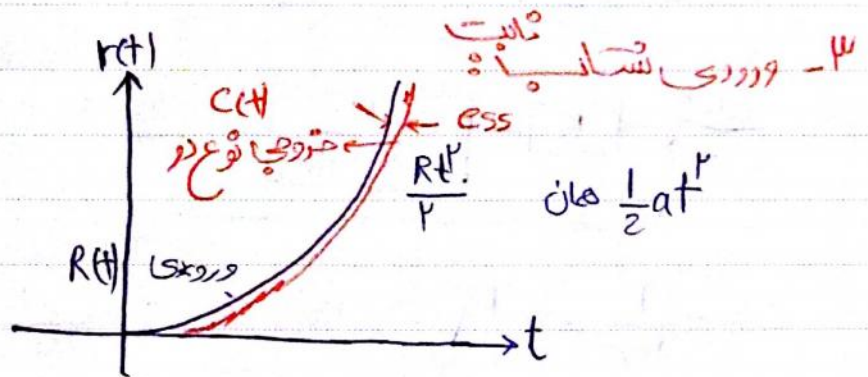 ۳- ورودی شتاب ثابت:
r(t)
C(t)
خروجی نوع دو
ess
Rt²/۲
همان 1/2 at²
R(t)
ورودی
t